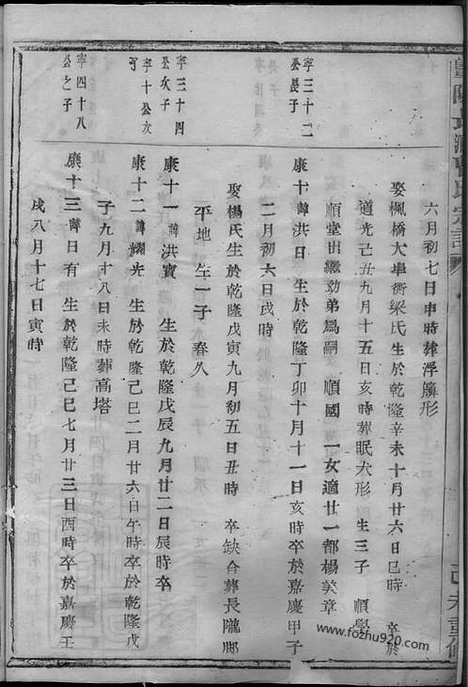 六月初七日申時葬浮牖形
娶楓橋大車衝梁氏生於乾隆辛未十月廿六日巳時 卒於
道光己丑九月十五日亥時葬眠犬形 生三子 順學
順堂出繼勃弟爲嗣 順國 一女適廿一都楊美章
宇三十二
公長子
康十諱洪日 生於乾隆丁卯十月十一日亥時卒於嘉慶甲子
二月初六日戌時
娶楊氏生於乾隆戊寅九月初五日丑時 卒缺合葬長隴郮
平地 生一子 春久
宇三十四
公次子
康十一諱洪寶 生於乾隆戊辰九月廿二日辰時卒
宇十公次
子
康十二諱耀光 生於乾隆己巳二月廿六日午時卒於乾隆戊
子九月十八日未時葬高塔
宇四十八
公之子
康十三諱日有 生於乾隆己巳七月廿三日酉時卒於嘉慶壬
戌八月十七日寅時
www.fozhu920.com